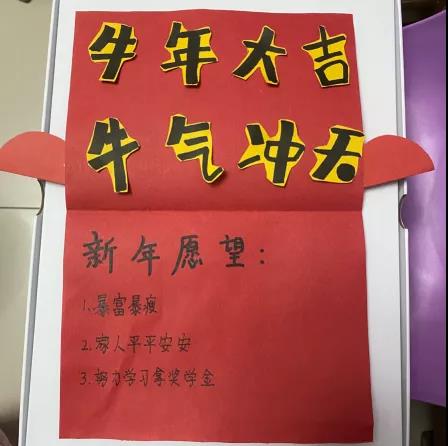 牛年大吉
牛气冲天
新年愿望：
1.暴富暴瘦
2.家人平平安安
3.努力学习拿奖学金